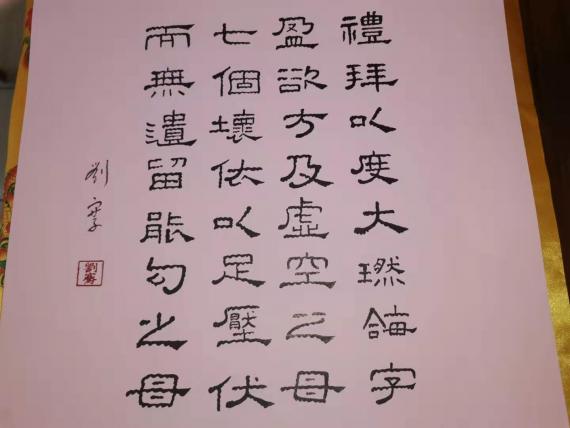 禮拜以度大字
盈欲方及虛空之母
七個壞依以足壓伏
而無遺留能勾之母
劉
劉